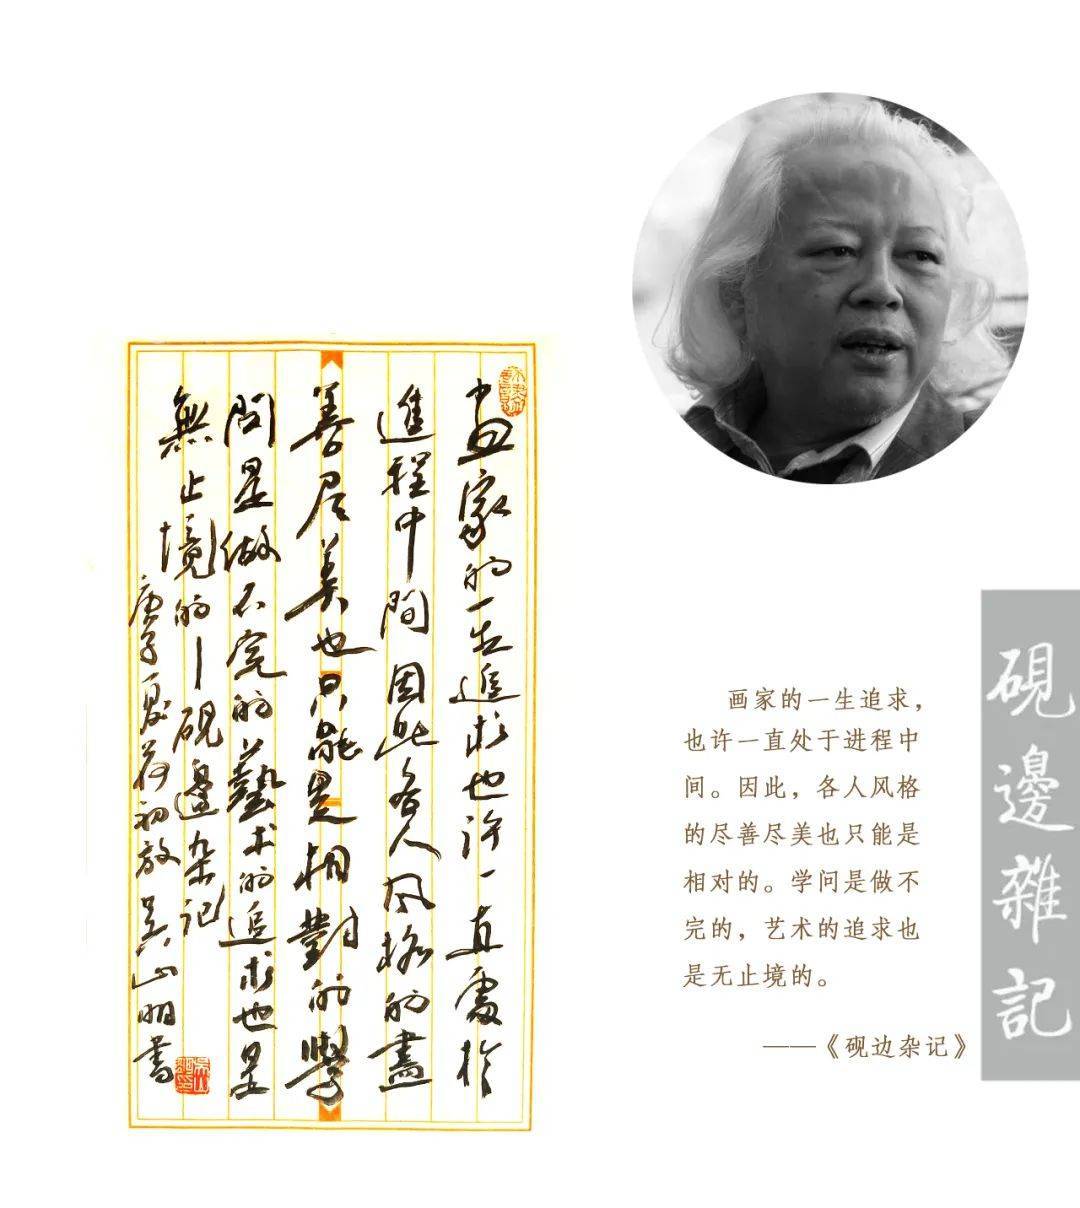 画家的一生追求也许一直處於
進程中間因此各人风格的盡
善尽美也只能是相對的學
问是做不完的藝术的追求也是
無止境的一砚邊杂记
庚子夏荷初放吴山明書
画家的一生追求，
也许一直处于进程中
间。因此，各人风格
的尽善尽美也只能是
相对的。学问是做不
完的，艺术的追求也
是无止境的。
——《砚边杂记》
硯邊雜記